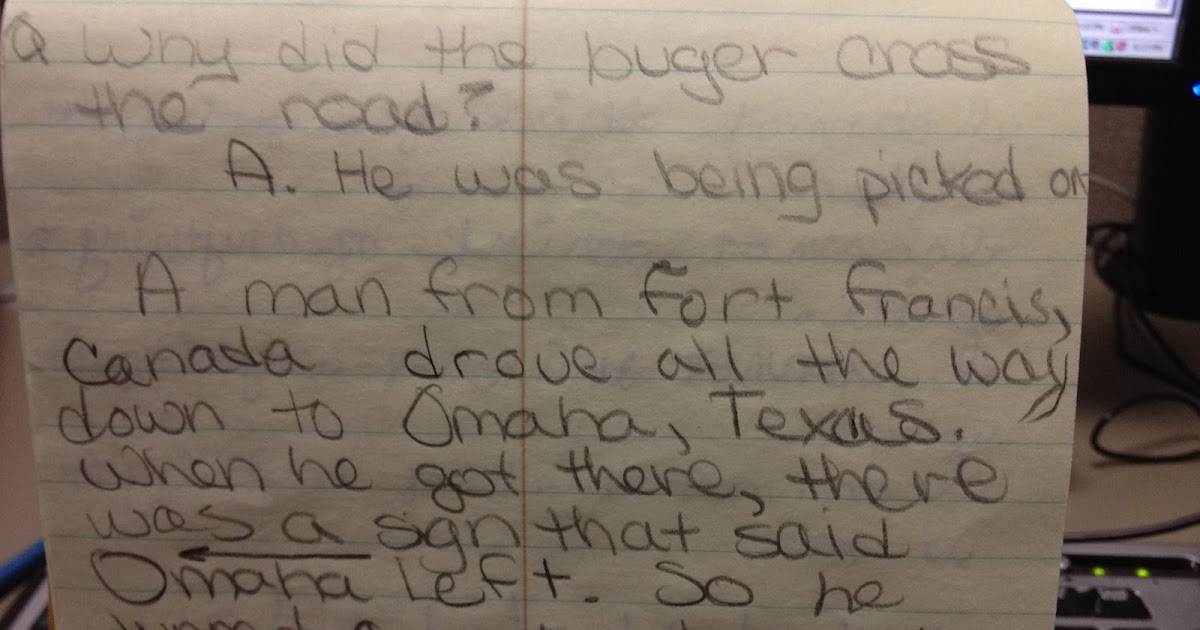 Q Why did the buger cross
the road?
A. He was being picked on
A man from Fort Francis,
Canada drove all the way
down to Omaha, Texas.
When he got there, there
was a sign that said
Omaha Left. So he